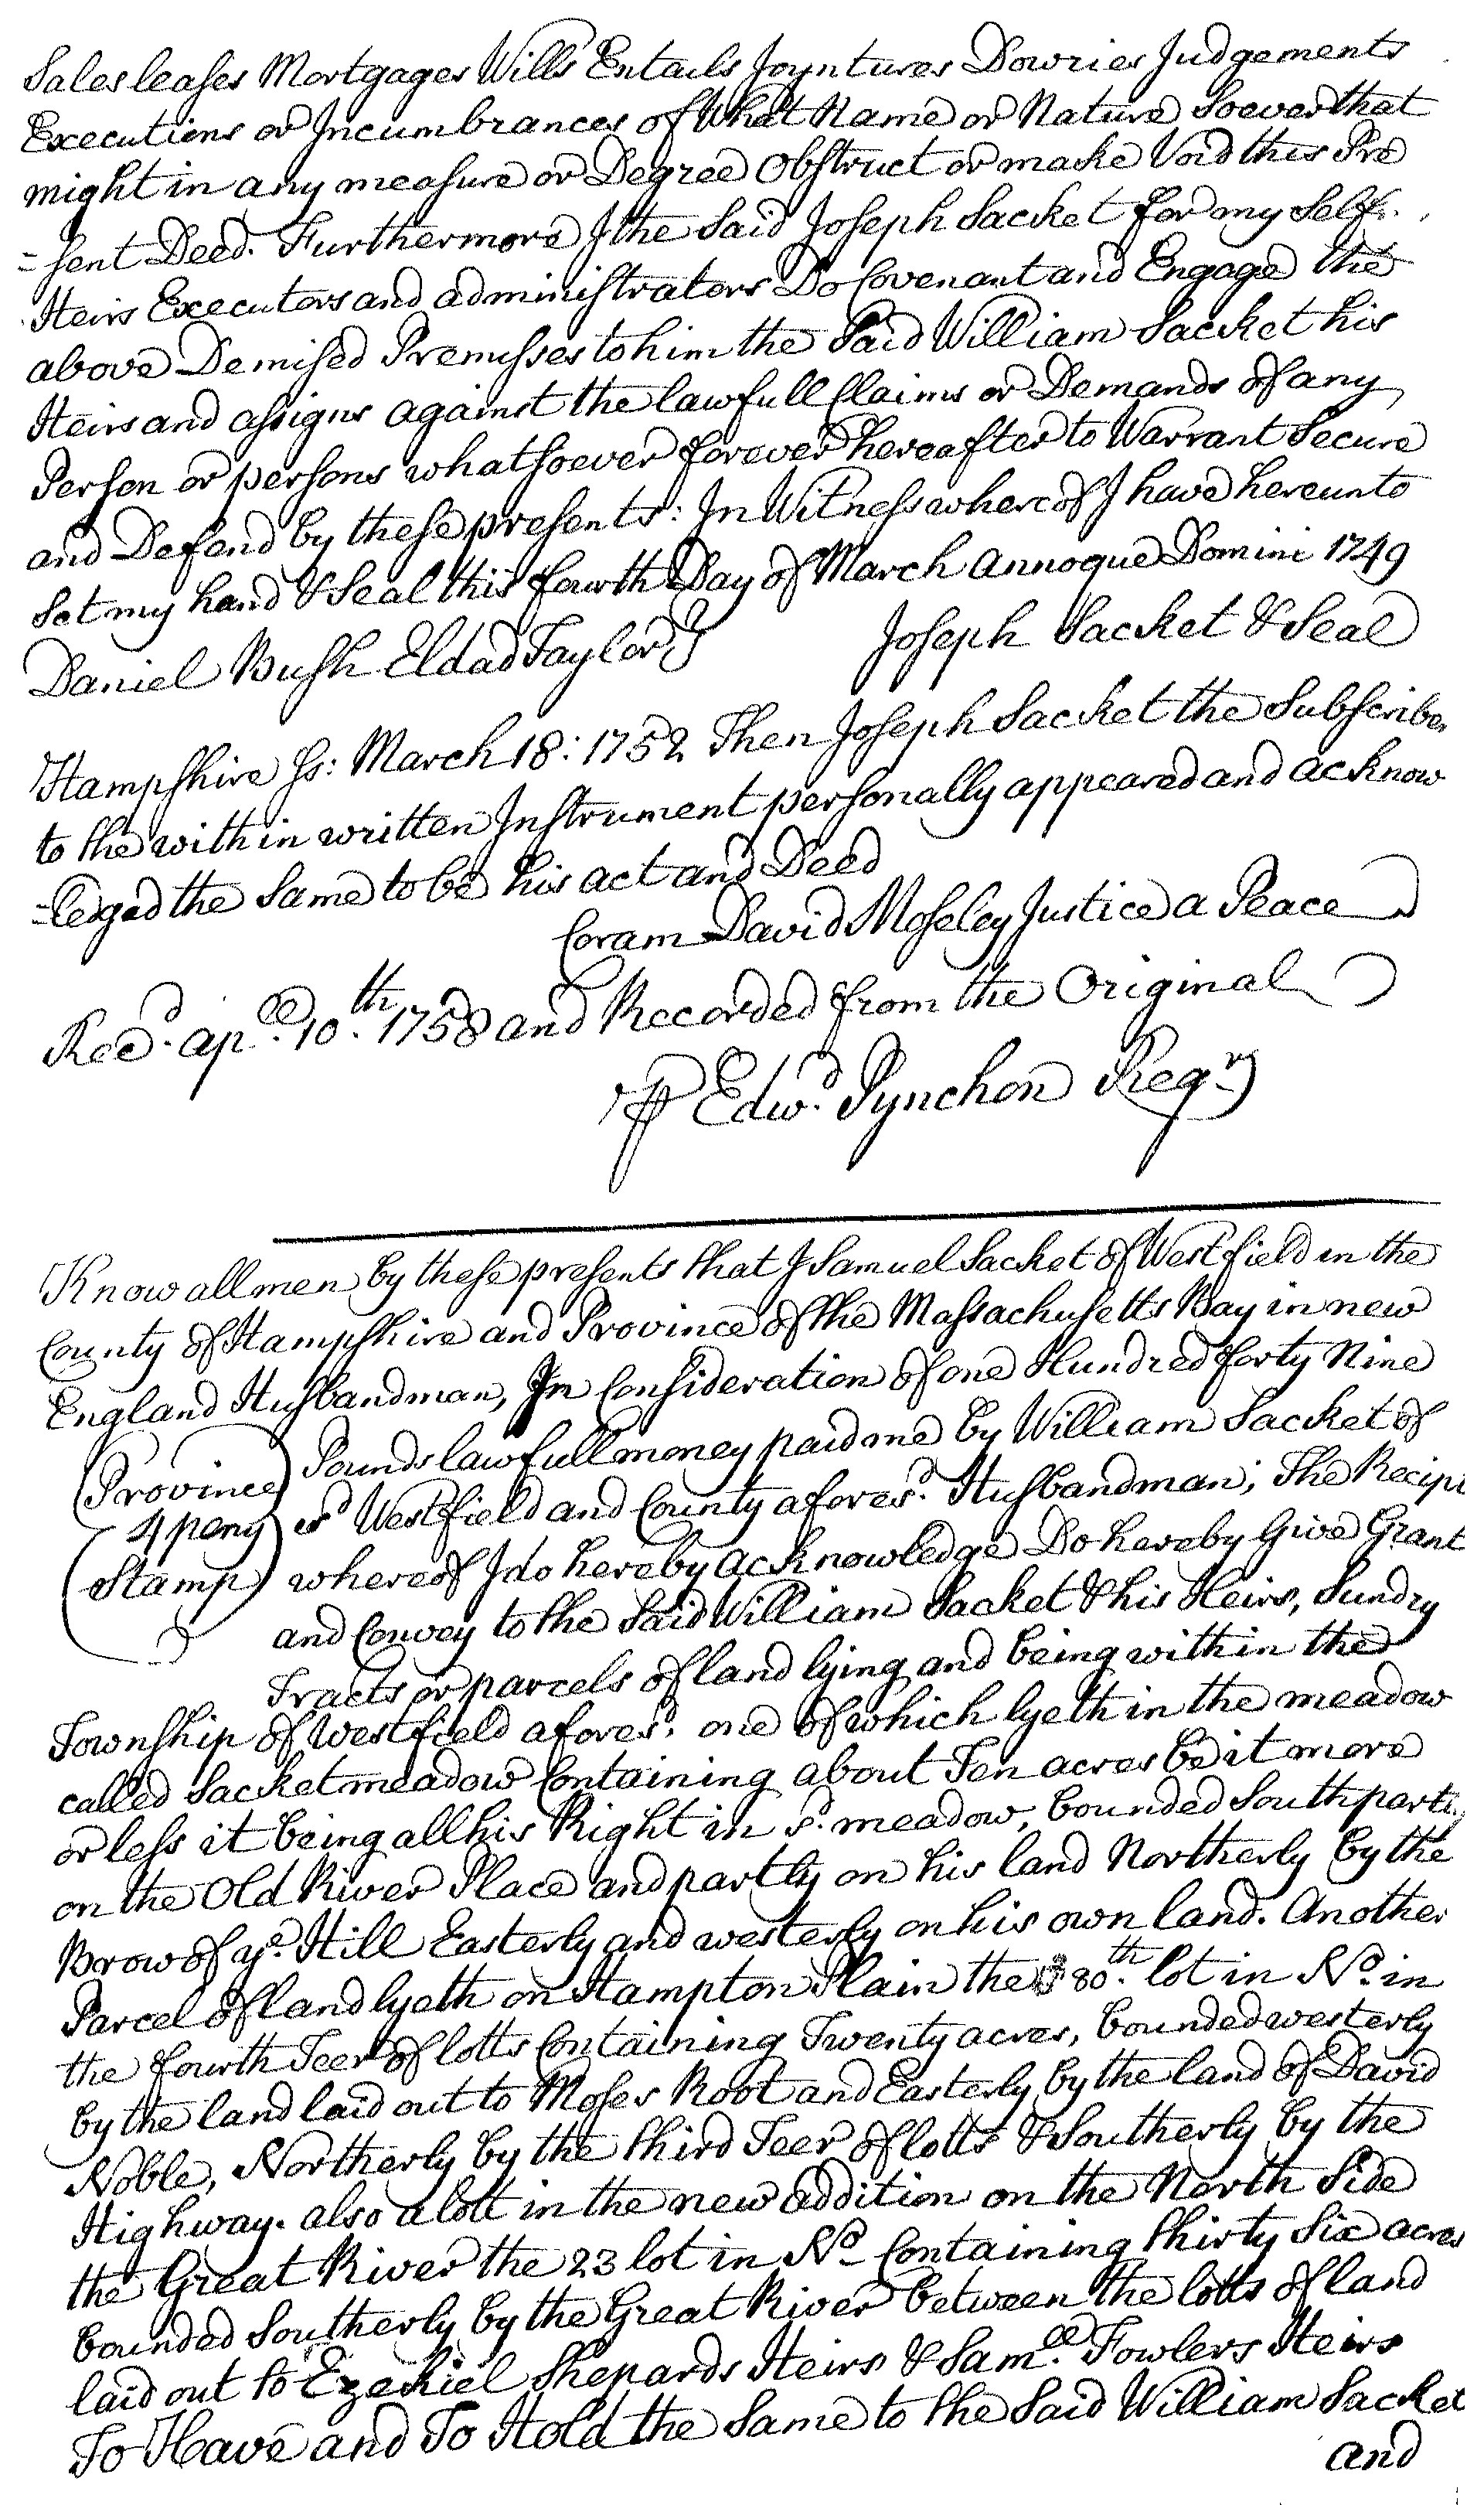 Sales leases Mortgages Wills Entails Joyntures Dowries Judgements
Executions or Incumbrances of What Name or Nature Soever that
might in any measure or Degree Obstruct or make Void this Pre
=sent Deed. Furthermore I the Said Joseph Sacket for my Self
Heirs Executors and administrators Do Covenant and Engage the
above Demised Premisses to him the Said William Sacket his
Heirs and assigns against the lawfull Claims or Demands of any
Person or persons whatsoever forever hereafter to Warrant Secure
and Defend by these presents: In Witness whereof I have hereunto
Set my hand & Seal this fourth Day of March Annoque Domini 1749
Daniel Bush Eldad Taylor Joseph Sacket & Seal
Hampshire Ss: March 18: 1752 Then Joseph Sacket the Subscriber
to the within written Instrument personally appeared and acknow
=ledged the Same to be his act and Deed
Coram David Moseley Justice a Peace
Recd. apll. 10th. 1758 and Recorded from the Original
P Edwd. Pynchon Regry
Know all men by these presents that I Samuel Sacket of Westfield in the
County of Hampshire and Province of the Massachusetts Bay in new
England Husbandman, In Consideration of one Hundred forty Nine
(Province) Pounds lawfull money paid me by William Sacket of
4 peny sd Westfield and County aforesd. Husbandman; The Recipt
(Stamp) whereof I do hereby acknowledge Do hereby Give Grant
and Convey to the Said William Sacket & his Heirs, Sundry
Tracts or parcels of land lying and being within the
Township of Westfield aforesd. one of which lyeth in the meadow
called Sacket meadow Containing about Ten acres be it more
or less it being all his Right in sd. meadow, bounded South partly
on the Old River Place and partly on his land Northerly by the
Brow of ye. Hill Easterly and westerly on his own land. Another
Parcel of land lyeth on Hampton Plain the 80th. lot in No. in
the fourth Teer of lotts Containing Twenty acres, bounded westerly
by the land laid out to Moses Root and Easterly by the land of David
Noble, Northerly by the third Teer of lotts & Southerly by the
Highway. also a lott in the new addition on the North Side
the Great River the 23 lot in No Containing thirty Six acres
bounded Southerly by the Great River between the lotts of land
laid out to Ezekiel Shepards Heirs & Samll. Fowlers Heirs
To Have and To Hold the Same to the Said William Sacket
and